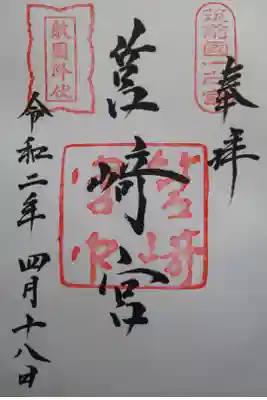 奉拝
筑前國一之宮
筥崎宮
敵國降伏
令和二年 四月十八日